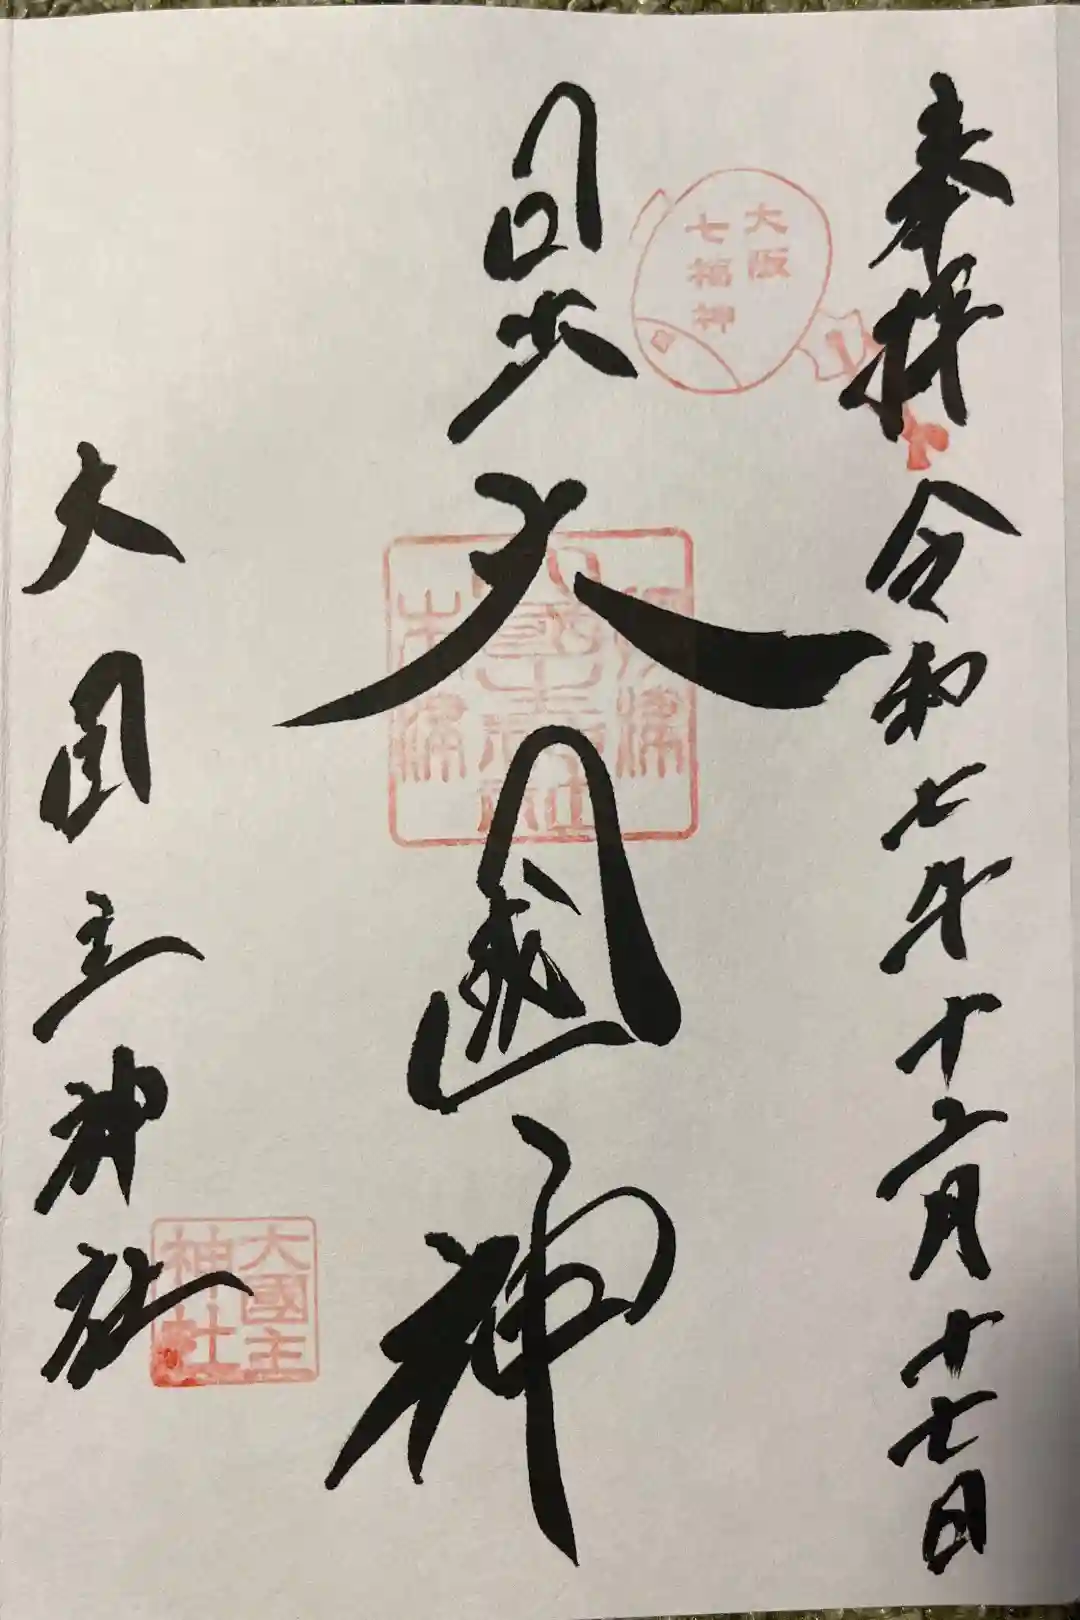 奉拝 令和七年十二月十七日
大阪
七福神
日出大國神
大国主神社
大國主
神社